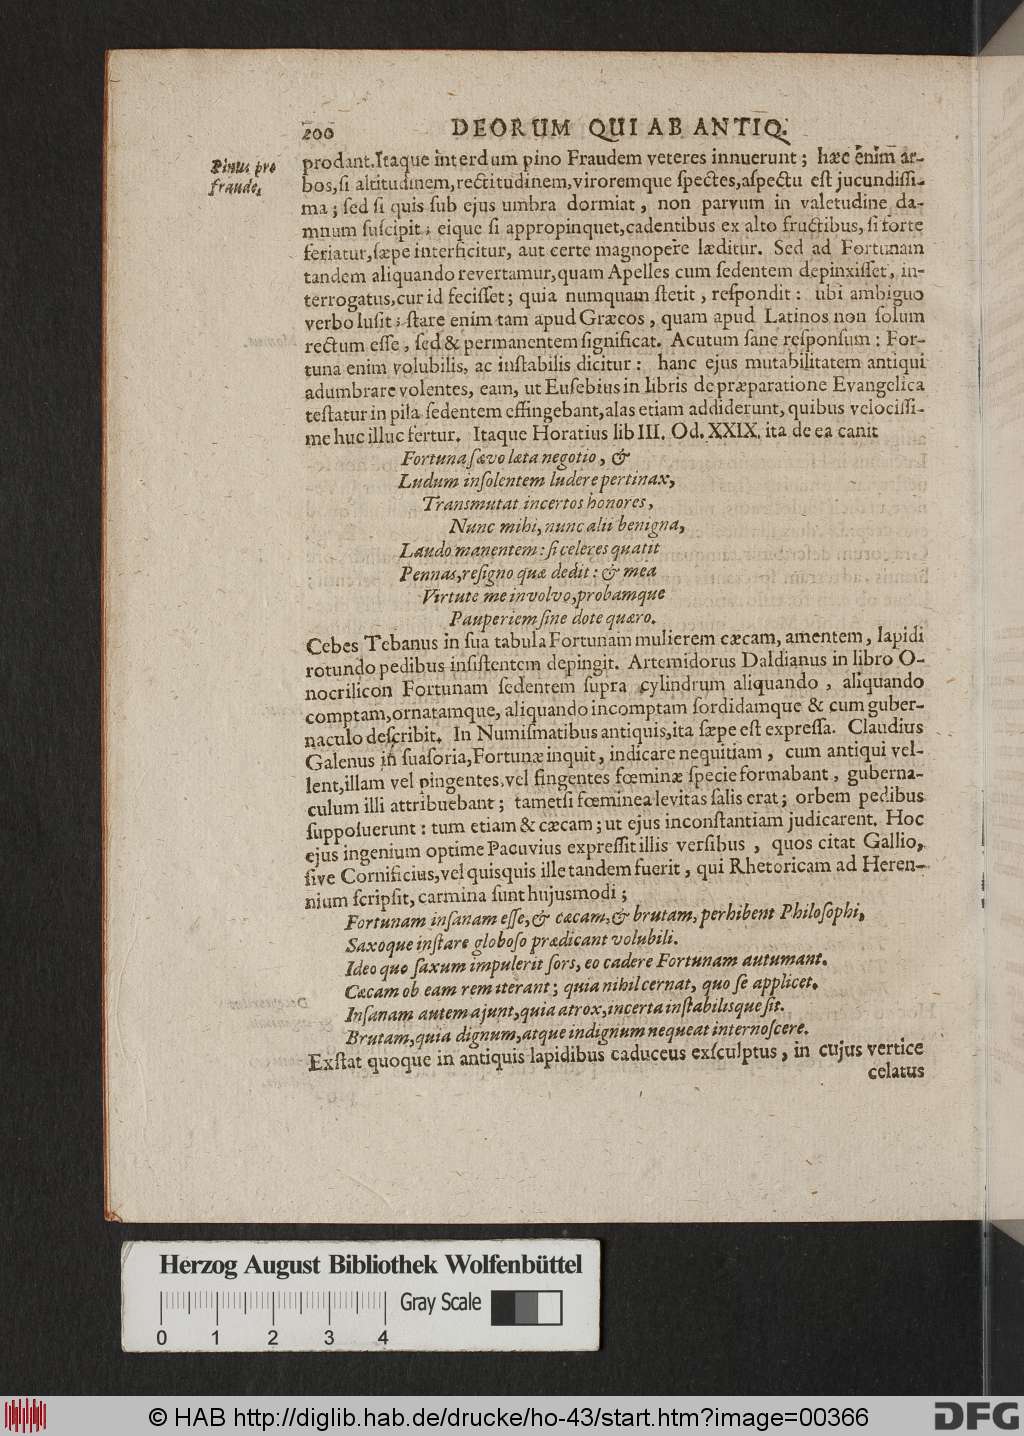 200 DEORUM QUI AB ANTIQ.
Pinus pro
fraude.
prodant. Itaque interdum pino Fraudem veteres innuerunt; hæc enim ar-
bos, si altitudinem, rectitudinem, viroremque spectes, aspectu est jucundissi-
ma; sed si quis sub ejus umbra dormiat, non parvum in valetudine da-
mnum suscipit; eique si appropinquet, cadentibus ex alto fructibus, si forte
feriatur, sæpe interficitur, aut certe magnopere læditur. Sed ad Fortunam
tandem aliquando revertamur, quam Apelles cum sedentem depinxisset, in-
terrogatus, cur id fecisset; quia numquam stetit, respondit: ubi ambiguo
verbo lusit; stare enim tam apud Græcos, quam apud Latinos non solum
rectum esse, sed & permanentem significat. Acutum sane responsum: For-
tuna enim volubilis, ac instabilis dicitur: hanc ejus mutabilitatem antiqui
adumbrare volentes, eam, ut Eusebius in libris de præparatione Evangelica
testatur in pila sedentem effingebant, alas etiam addiderunt, quibus velocissi-
me huc illuc fertur. Itaque Horatius lib III. Od. XXIX. ita de ea canit
Fortuna sævo læta negotio, &
Ludum insolentem ludere pertinax,
Transmutat incertos honores,
Nunc mihi, nunc alii benigna,
Laudo manentem: si celeres quatit
Pennas, resigno quæ dedit: & mea
Virtute me involvo, probamque
Pauperiem sine dote quæro.
Cebes Tebanus in sua tabula Fortunam mulierem cæcam, amentem, lapidi
rotundo pedibus insistentem depingit. Artemidorus Daldianus in libro O-
nocrilicon Fortunam sedentem supra cylindrum aliquando, aliquando
comptam, ornatamque, aliquando incomptam sordidamque & cum guber-
naculo describit. In Numismatibus antiquis, ita sæpe est expressa. Claudius
Galenus in suasoria, Fortunæ inquit, indicare nequitiam, cum antiqui vel-
lent, illam vel pingentes, vel fingentes fœminæ specie formabant, guberna-
culum illi attribuebant; tametsi fœminea levitas salis erat; orbem pedibus
supposuerunt: tum etiam & cæcam; ut ejus inconstantiam judicarent. Hoc
ejus ingenium optime Pacuvius expressit illis versibus, quos citat Gallio,
sive Cornificius, vel quisquis ille tandem fuerit, qui Rhetoricam ad Heren-
nium scripsit, carmina sunt hujusmodi;
Fortunam insanam esse, & cæcam, & brutam, perhibent Philosophi,
Saxoque instare globoso prædicant volubili.
Ideo quo saxum impulerit sors, eo cadere Fortunam autumant.
Cæcam ob eam rem iterant; quia nihil cernat, quo se applicet.
Insanam autem ajunt, quia atrox, incerta instabilisque sit.
Brutam, quia dignum, atque indignum nequeat internoscere.
Exstat quoque in antiquis lapidibus caduceus exsculptus, in cujus vertice
celatus
Herzog August Bibliothek Wolfenbüttel
Gray Scale
0 1 2 3 4
© HAB http://diglib.hab.de/drucke/ho-43/start.htm?image=00366
DFG